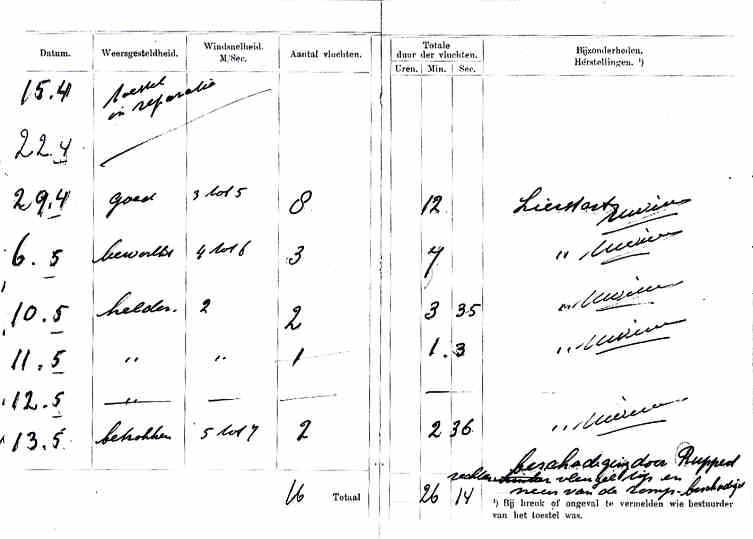 Datum. Weersgesteldheid. Windsnelheid. M/Sec. Aantal vluchten. Totale duur der vluchten. Uren. Min. Sec. Bijzonderheden. Herstellingen. ¹)
15.4 toestel
in reparatie
22.4
29.4 goed 3 tot 5 8 12 Lierstart
6.5 bewolkt 4 tot 6 3 7 "
10.5 helder. 2 2 3 35 "
11.5 " " 1 1. 3 "
12.5 — " — — — —
13.5 betrokken 5 tot 7 2 2 36 "
beschadiging door Rupped
rechter vleugeltip en
neus van de romp beschadigd
16 Totaal 26 14
¹) Bij breuk of ongeval te vermelden wie bestuurder
van het toestel was.